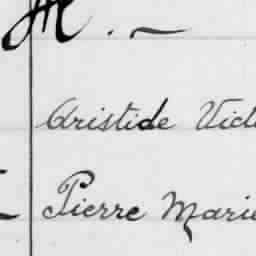 M. —
Aristide Vict
Pierre Marie